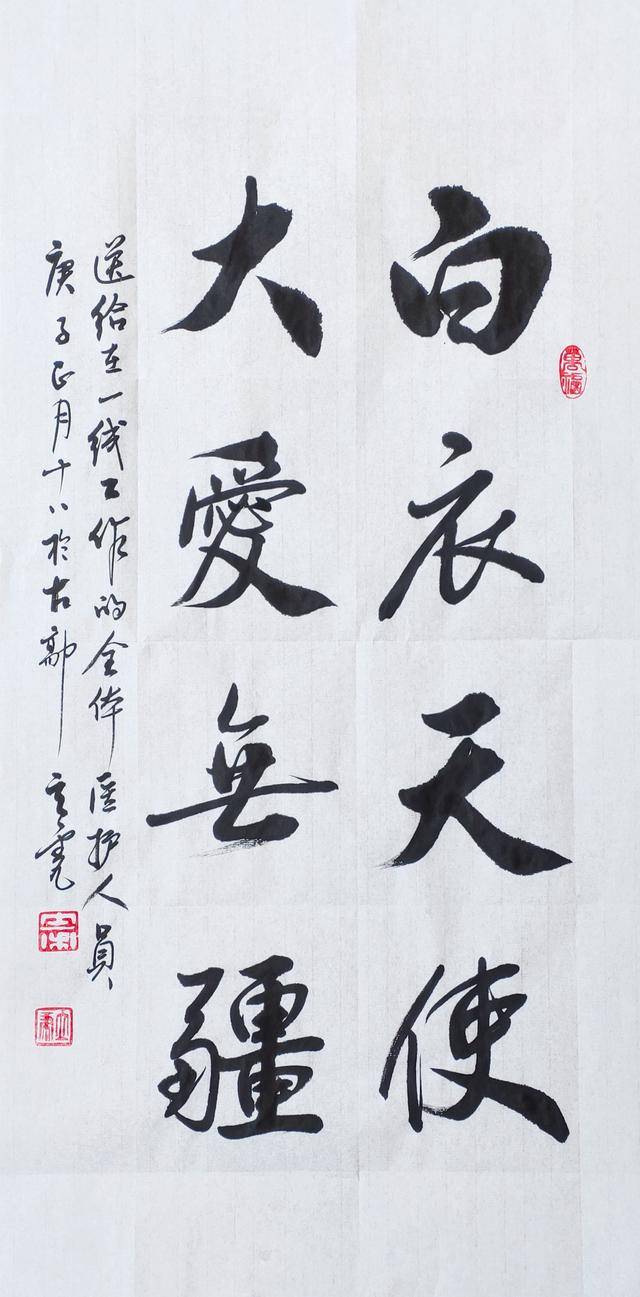 白衣天使
大愛無疆
送给在一线工作的全体医护人員
庚子正月十八於古